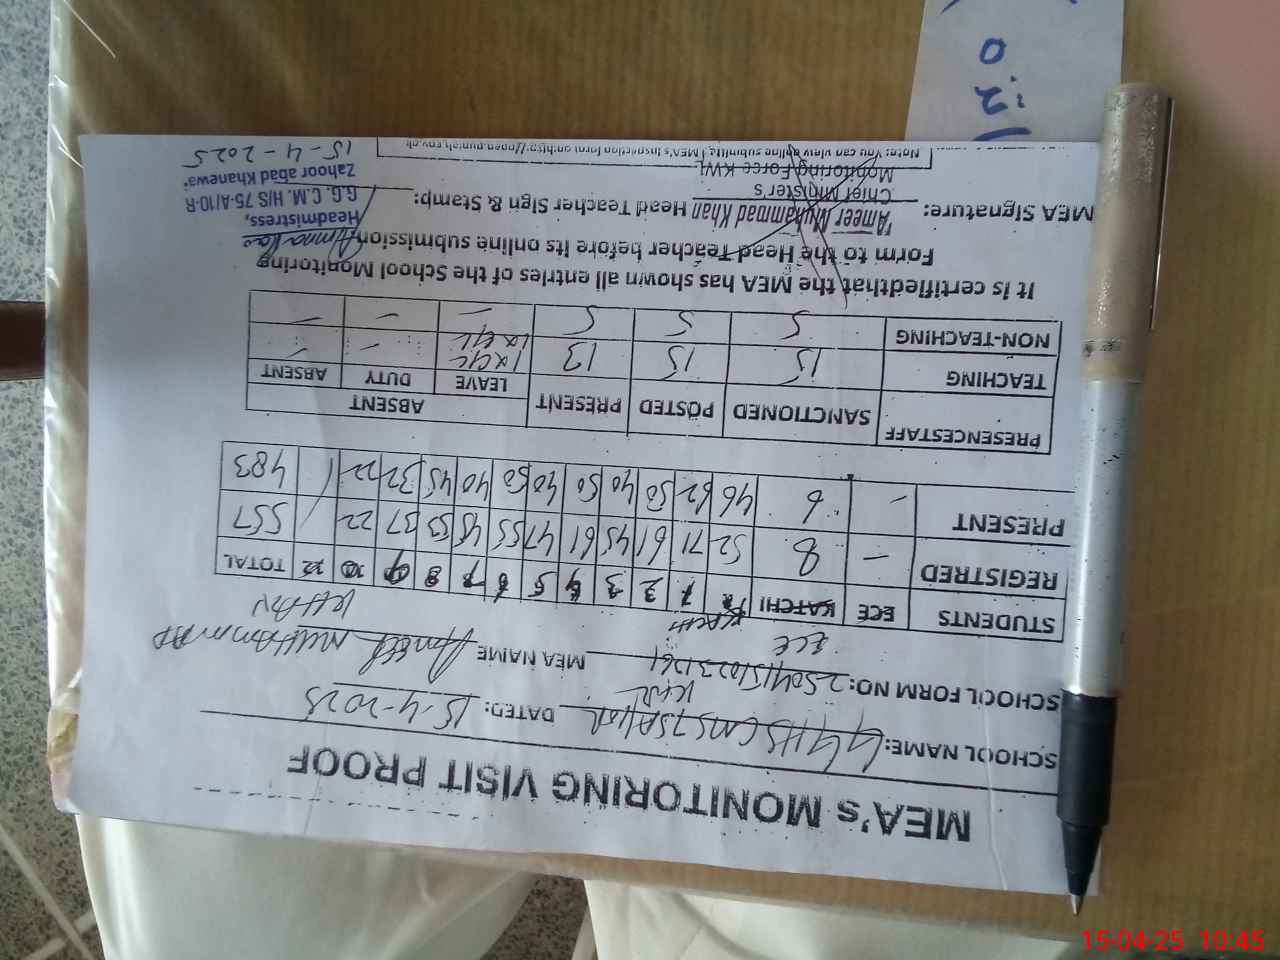 MEA's MONITORING VISIT PROOF
SCHOOL NAME: GGHS CMS 75A/10R KWL DATED: 15-4-2025
SCHOOL FORM NO: MEA NAME Ameer MUHAMMAD KHAN
ECE KACHI
STUDENTS ECE KATCHI 1 2 3 4 5 6 7 8 9 10 TOTAL
REGISTRED - 8 52 71 61 45 61 47 55 48 53 37 22 557
PRESENT - 6 46 62 50 40 50 40 50 40 45 32 22 483
PRESENCESTAFF SANCTIONED POSTED PRESENT ABSENT
LEAVE DUTY ABSENT
TEACHING 15 15 13 - -
NON-TEACHING 5 5 5 - - -
It is certifiedthat the MEA has shown all entries of the School Monitoring
Form to the Head Teacher before its online submission
MEA Signature: Head Teacher Sign & Stamp:
Ameer Muhammad Khan
Chief Minister's
Monitoring Force KWL
Headmistress,
G.G. C.M. H/S 75-A/10-R
Zahoor abad Khanewal
15-4-2025
Note: You can view online submitted MEA's inspection form on http://open.punjab.gov.pk
15-04-25 10:45